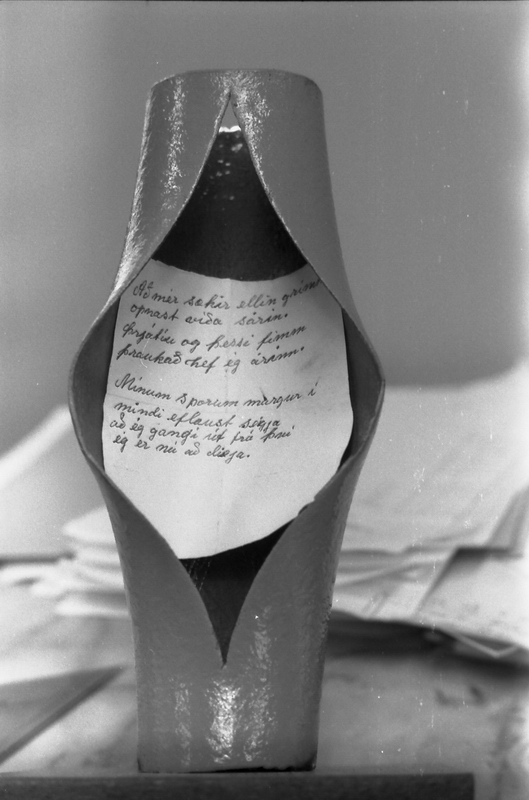 Að mér sækir ellin grimm
opnast víða sárin.
Þrjátíu og þessi fimm
þraukað hef ég árinn.
Mínum sporum margur í
mindi eflaust segja
að ég gangi út frá því
ég er nú að deigja.